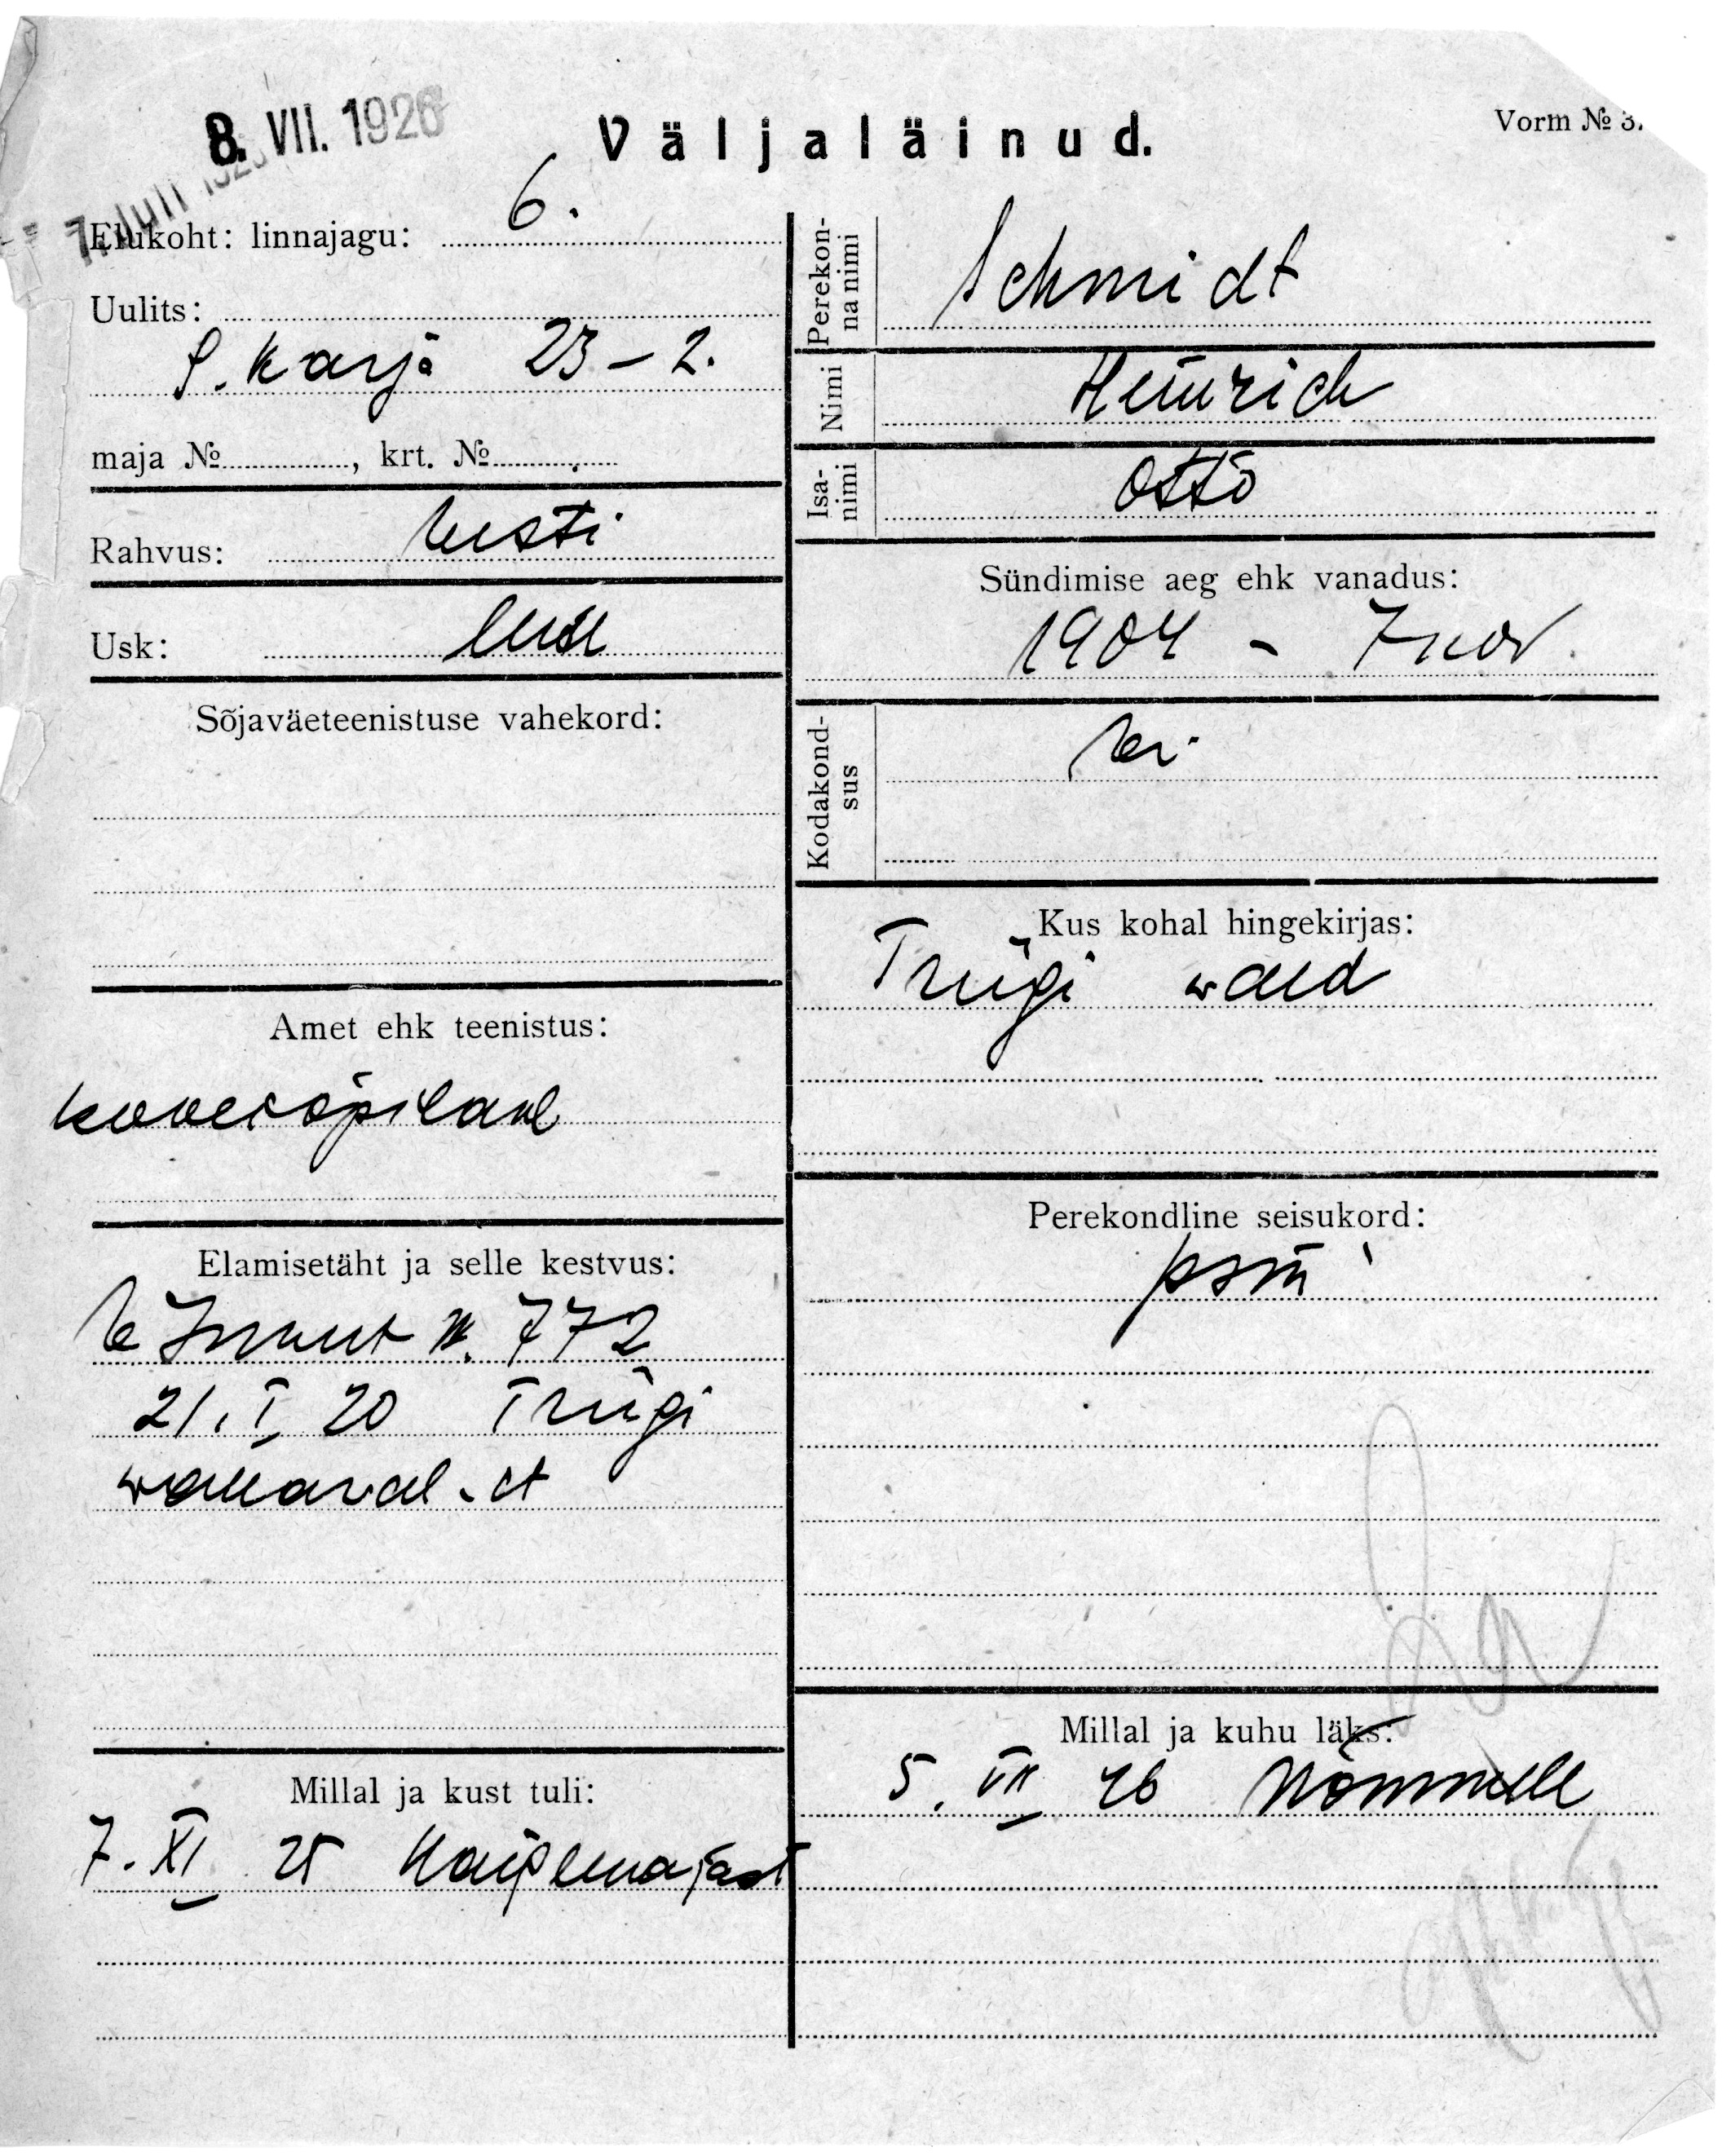 8. VII. 1926
7. Juli 192
Väljaläinud.
Vorm № 3.
Elukoht: linnajagu: 6.
Uulits:
S. Karja 23 – 2.
maja № , krt. №
Rahvus: Eesti
Usk: luth
Sõjaväeteenistuse vahekord:
Amet ehk teenistus:
kooliõpilane
Elamisetäht ja selle kestvus:
№ 772
21. I 20 Triigi
wallaval. st
Millal ja kust tuli:
7. XI 25
Perekonna nimi Schmidt
Nimi Heinrich
Isanimi Otto
Sündimise aeg ehk vanadus:
1904 – 7 nov.
Kodakondsus
Kus kohal hingekirjas:
Triigi wald
Perekondline seisukord:
Millal ja kuhu läks:
5. VII 26 Nõmmele